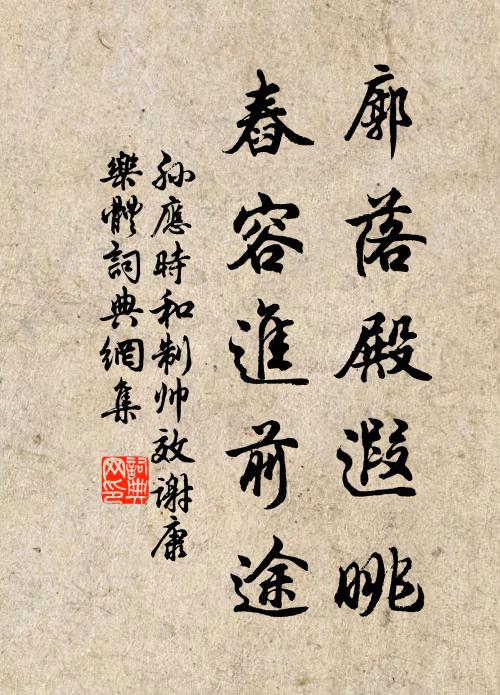 廓落殿遐眺
舂容進前途
孙應時和制帅效謝康
樂體詞典網集
詞典
网印